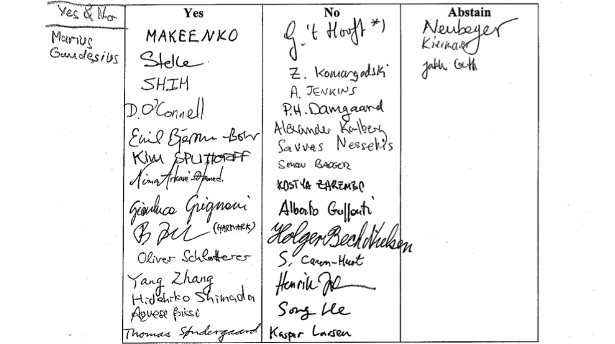 Yes & No
Marius
Gaudesius
Yes
MAKEENKO
Stelle
SHIM
D. O'Connell
Emil Bjerrum-Bohr
KIM SPLITTORFF
Nima Arkani-Hamed
Gianluca Grignani
(HARMARK)
Oliver Schlotterer
Yang Zhang
Hidehiko Shimada
Agnese Bissi
Thomas Søndergaard
No
G. 't Hooft *)
Z. Komargodski
A. JENKINS
P.H. Damgaard
Alexander Karlberg
Savvas Nesseris
SIMON BADGER
KOSTYA ZAREMBO
Alberto Guffanti
Holger Bech Nielsen
S. Caron-Huot
Henrik
Song He
Kasper Larsen
Abstain
Neuberger
Kiritsis